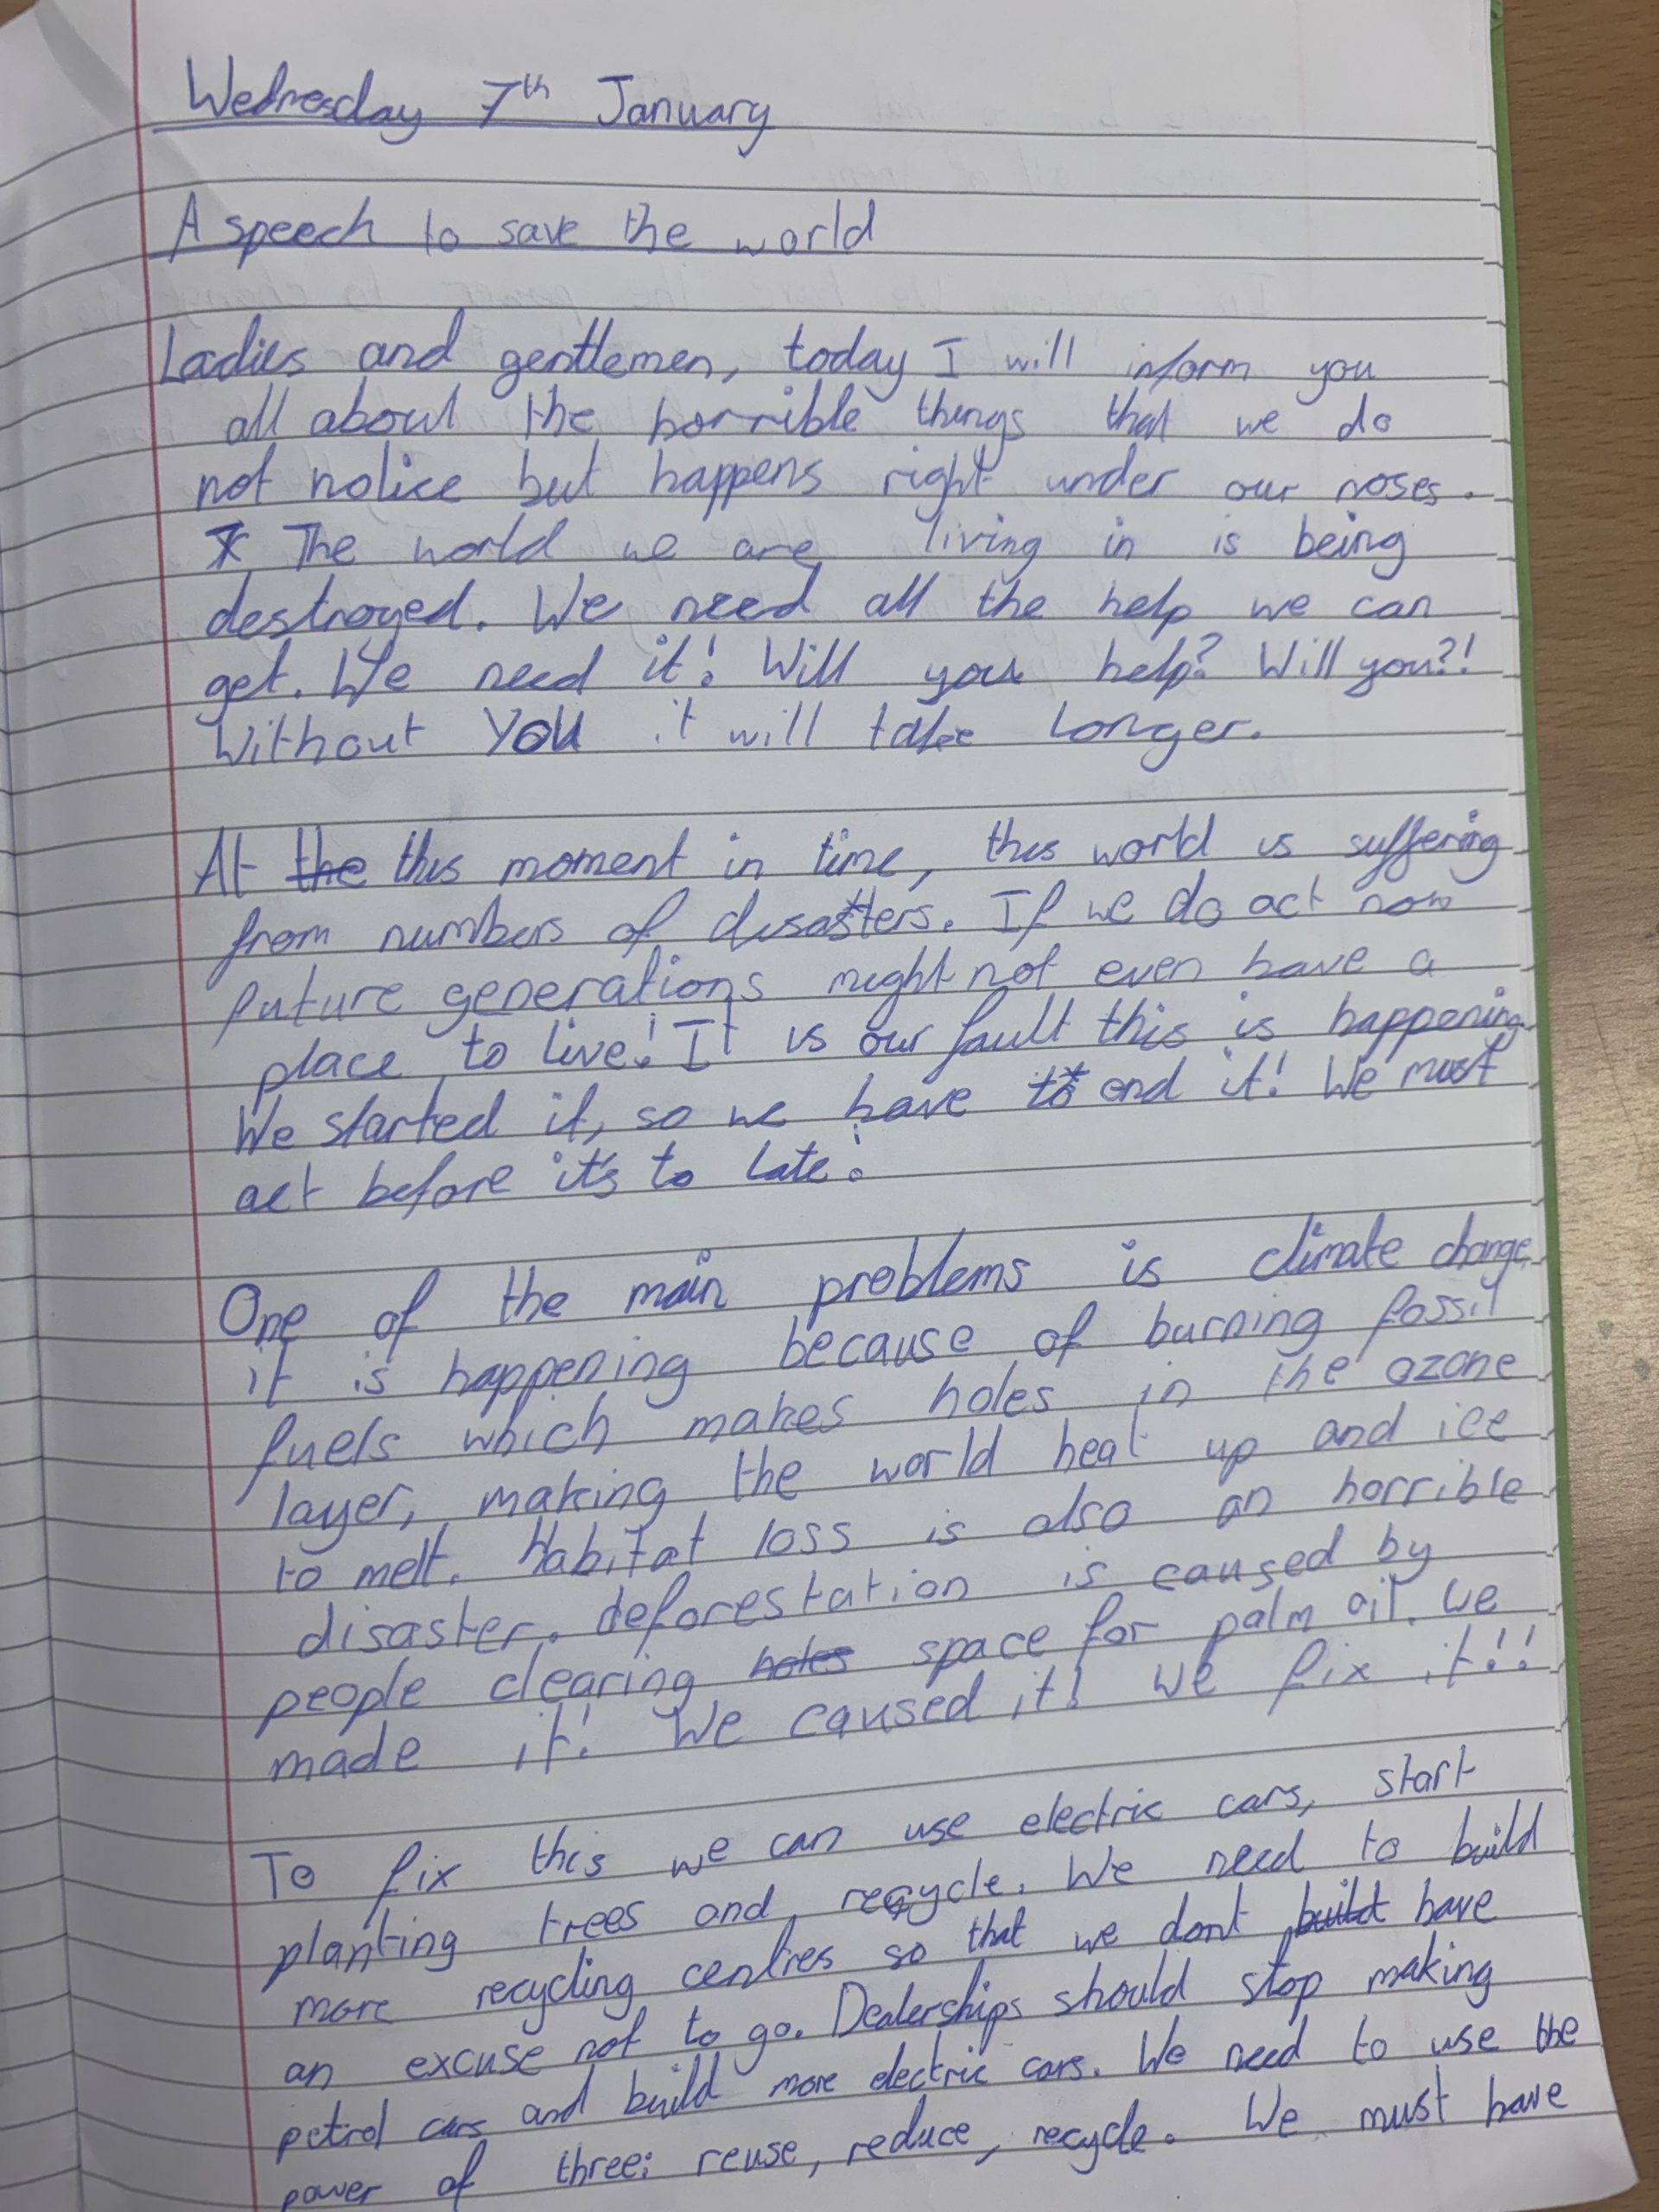 Wednesday 7th January
A speech to save the world
Ladies and gentlemen, today I will inform you
all about the horrible things that we do
not notice but happens right under our noses.
The world we are living in is being
destroyed. We need all the help we can
get. We need it! Will you help? Will you?!
Without YOU it will take longer.
At the this moment in time, this world is suffering
from numbers of disasters. If we do act now
future generations might not even have a
place to live! It is our fault this is happening
We started it, so we have to end it! We must
act before it's to late!
One of the main problems is climate change
it is happening because of burning fossil
fuels which makes holes in the ozone
layer, making the world heat up and ice
to melt. Habitat loss is also an horrible
disaster. deforestation is caused by
people clearing holes space for palm oil. We
made it! We caused it! We fix it!!
To fix this we can use electric cars, start
planting trees and recycle. We need to build
more recycling centres so that we dont build have
an excuse not to go. Dealerships should stop making
petrol cars and build more electric cars. We need to use the
power of three: reuse, reduce, recycle. We must have